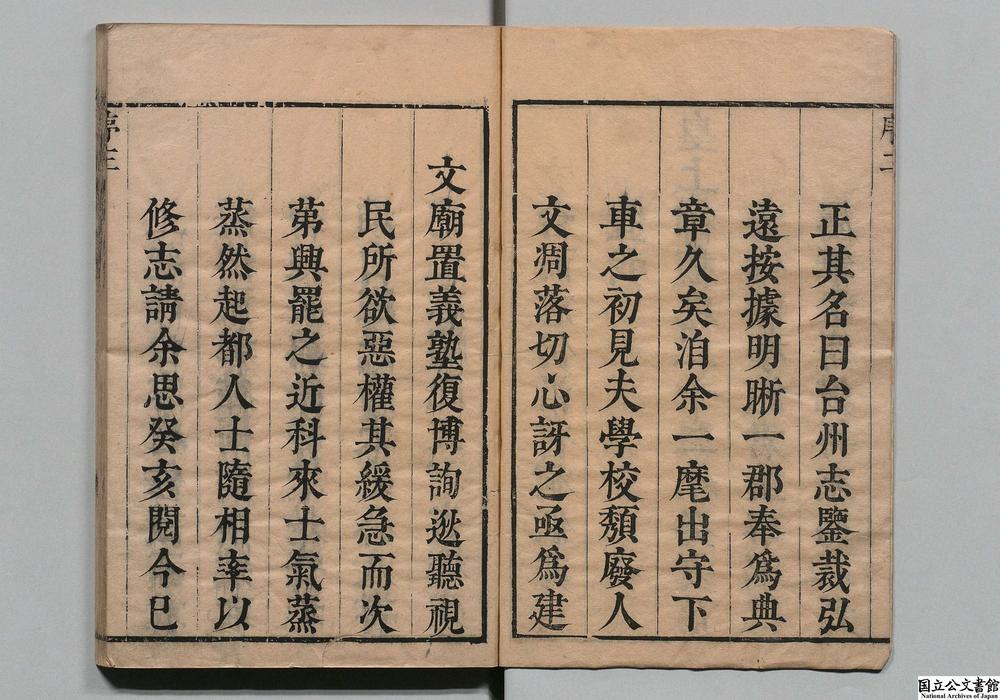 序二
正其名曰台州志鑒裁弘
遠按據明晰一郡奉爲典
章久矣洎余一麾出守下
車之初見夫學校頽廢人
文凋落切心訝之亟爲建
文廟置義塾復博詢逖聽視
民所欲惡權其緩急而次
第興罷之近科來士氣蒸
蒸然起都人士隨相率以
修志請余思癸亥閱今已
序三
国立公文書館
National Archives of Japan